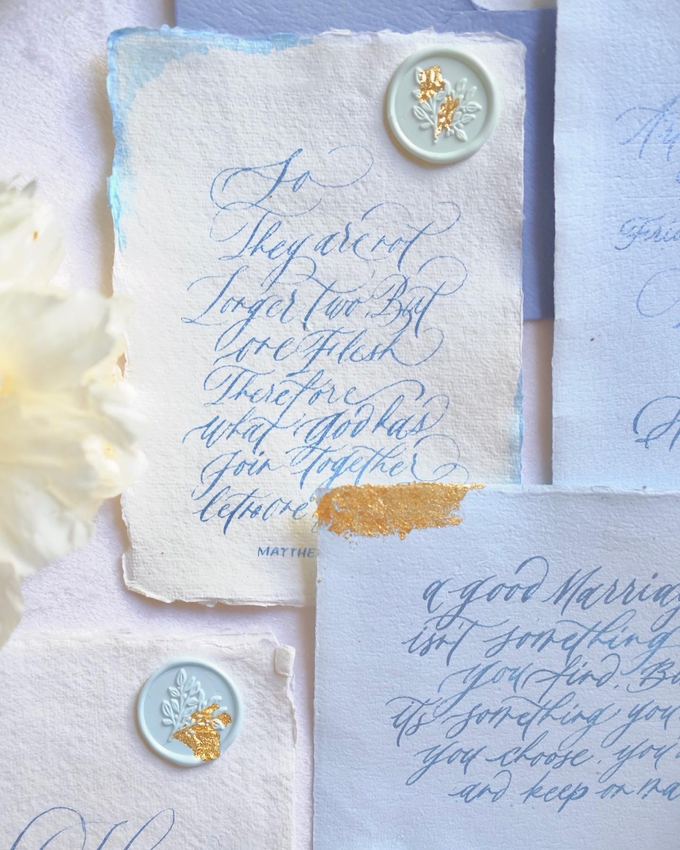 So
They are not
longer two But
one Flesh
Therefore
what God has
join together
let no one
MATTHE
a good Marriag
isn't something
you find. Bu
it's something you
you choose. you
and keep on ma